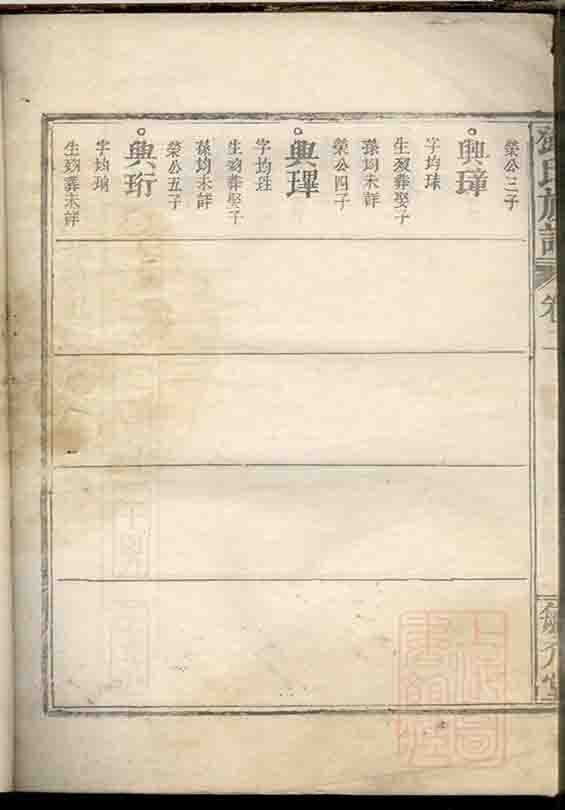 榮公三子
興璋
字均珠
生歿葬娶子
孫均未詳
榮公四子
興琿
字均珄
生歿葬娶子
孫均未詳
榮公五子
興珩
字均瑜
生歿葬未詳
氏族譜
卷二